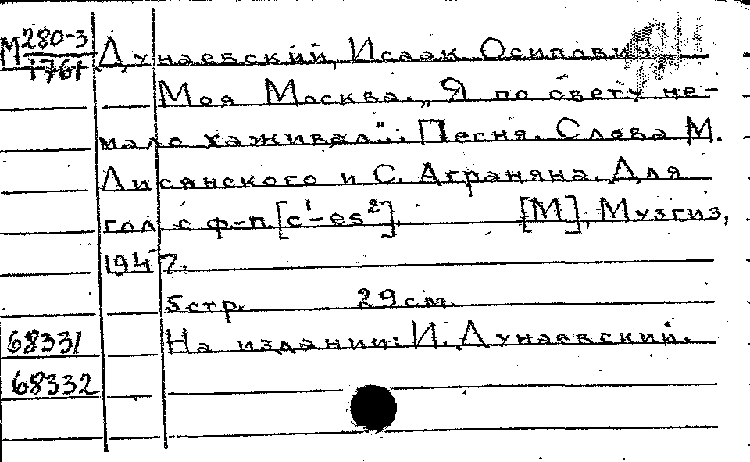 М 280-3
1761
Дунаевский, Исаак Осипович
Моя Москва. „Я по свету не-
мало хаживал“.: Песня. Слова М.
Лисянского и С. Аграняна. Для
гол. с ф-п. [c¹-es²]. [М], Музгиз,
1947.
5 стр. 29 см.
68331 На издании: И. Дунаевский.
68332